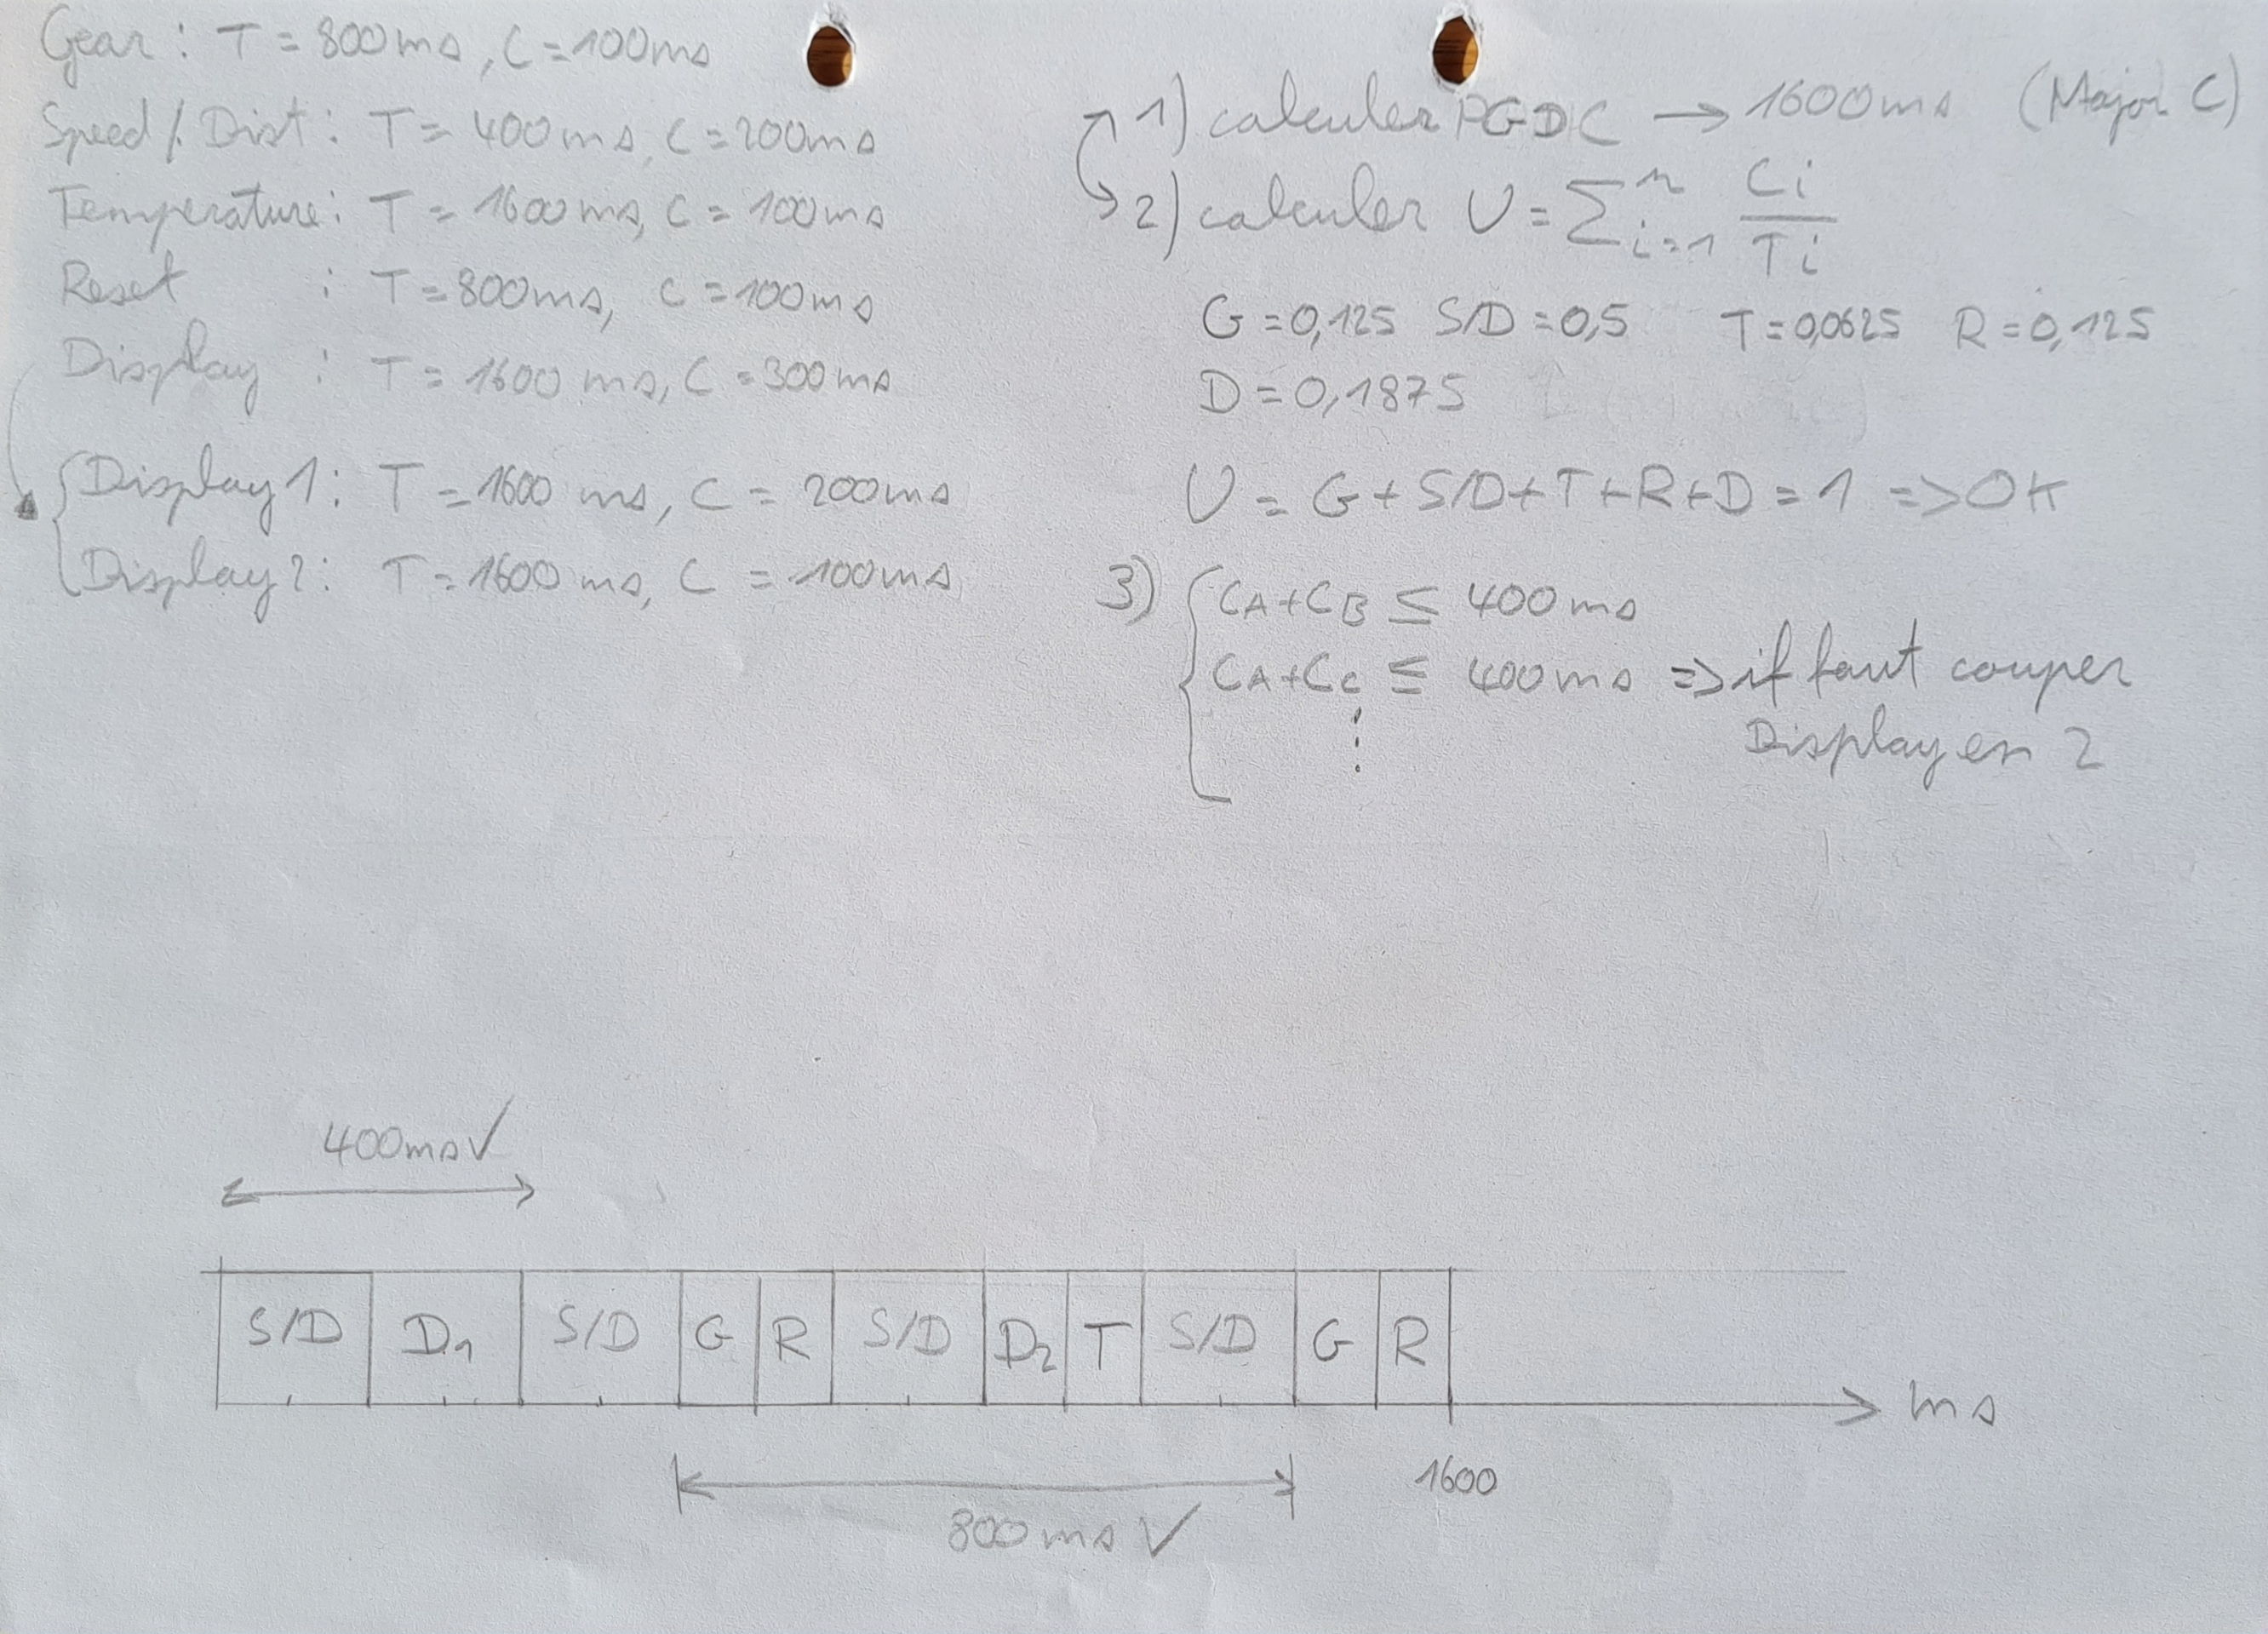 Gear : T = 800ms, C = 100ms
Speed / Dist : T = 400ms, C = 200ms
Temperature : T = 1600ms, C = 100ms
Reset : T = 800ms, C = 100ms
Display : T = 1600 ms, C = 300ms
Display 1 : T = 1600 ms, C = 200ms
Display 2 : T = 1600 ms, C = 100ms
1) calculer PGDC → 1600ms (Major C)
2) calculer U = ∑ⁿᵢ₌₁ Ci/Ti
G = 0,125 S/D = 0,5 T = 0,0625 R = 0,125
D = 0,1875
U = G + S/D + T + R + D = 1 => OK
3) { CA + CB ≤ 400ms
CA + CC ≤ 400ms => il faut couper
⋮ Display en 2
400ms ✓
S/D D1 S/D G R S/D D2 T S/D G R
ms
1600
800ms ✓